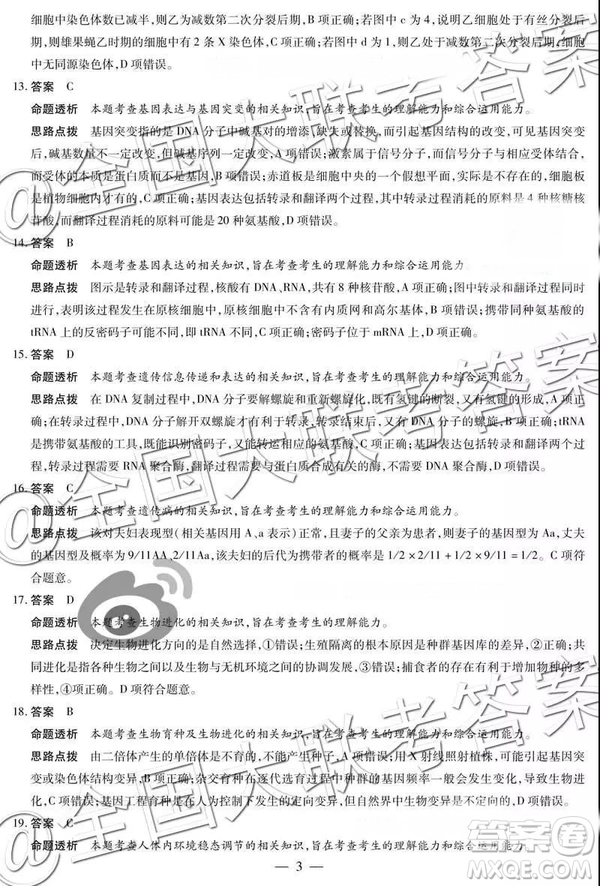 细胞中染色体数已减半，则乙为减数第二次分裂后期，B项正确；若图中c为4，说明乙细胞处于有丝分裂后
期，则雄果蝇乙时期的细胞中有2条X染色体，C项正确；若图中d为1，则乙处于减数第二次分裂后期，细胞
中无同源染色体，D项错误。
13. 答案 C
命题透析 本题考查基因表达与基因突变的相关知识，旨在考查考生的理解能力和综合运用能力。
思路点拨 基因突变指的是DNA分子中碱基对的增添、缺失或替换，而引起基因结构的改变，可见基因突变
后，碱基数量不一定改变，但碱基序列一定改变，A项错误；激素属于信号分子，而信号分子与受体有关，
而受体的本质是蛋白质而不是基因，B项错误；赤道板是细胞中央的一个假想平面，实际是不存在的，细胞板是
植物细胞内才有的，C项正确；基因表达包括转录和翻译两个过程，其中转录过程消耗的原料是4种核糖核
苷酸，翻译过程消耗的原料可能是20种氨基酸，D项错误。
14. 答案 B
命题透析 本题考查基因表达的相关知识，旨在考查考生的理解能力和综合运用能力。
思路点拨 图示是转录和翻译过程，核酸有DNA、RNA，共有8种核苷酸，A项正确；图中转录和翻译过程同时
进行，表明该过程发生在原核细胞中，原核细胞中不含有内质网和高尔基体，B项错误；携带同种氨基酸的
tRNA上的反密码子可能不同，C项正确；密码子位于mRNA上，D项正确。
15. 答案 D
命题透析 本题考查遗传信息传递和表达的相关知识，旨在考查考生的理解能力和综合运用能力。
思路点拨 在DNA复制过程中，DNA分子要解螺旋和重新螺旋化，既有氢键的断裂，又有氢键的形成，A项正
确；在转录过程中，DNA分子解开双螺旋有利于转录，转录结束后，又恢复双螺旋结构，B项正确；tRNA是
携带氨基酸的工具，既能识别密码子，又能转运相应的氨基酸，C项正确；基因表达包括转录和翻译两个过程，
转录过程需要RNA聚合酶，翻译过程需要与蛋白质合成有关的酶，不需要DNA聚合酶，D项错误。
16. 答案 C
命题透析 本题考查遗传病的相关知识，旨在考查考生的理解能力和综合运用能力。
思路点拨 该对夫妇表现型（相关基因用A、a表示）正常，且妻子的父亲为患者，则妻子的基因型为Aa，丈夫
的基因型及概率为9/11AA、2/11Aa，该夫妇的后代为携带者的概率为1/2×2/11+1/2×9/11=1/2。C项符
合题意。
17. 答案 D
命题透析 本题考查生物进化的相关知识，旨在考查考生的理解能力。
思路点拨 决定生物进化方向的是自然选择，①错误；生殖隔离的根本原因是种群基因库的差异，②正确；共
同进化是指各种生物之间以及生物与无机环境之间的协调发展，③错误；捕食者的存在有利于增加物种的多
样性，④项正确。D项符合题意。
18. 答案 B
命题透析 本题考查生物育种及生物进化的相关知识，旨在考查考生的理解能力。
思路点拨 由二倍体产生的单倍体是不育的，不能产生种子，A项错误；用X射线照射植株，可能引起基因突
变或染色体结构变异，B项正确；杂交育种在逐代选育过程中的基因频率一般会发生变化，导致生物发生进
化，C项错误；基因工程育种是在人为控制下发生的定向变异，但自然界中生物变异是不定向的，D项错误。
19. 答案 C
命题透析 本题考查人体内环境稳态调节的相关知识，旨在考查考生的理解能力和综合运用能力。
— 3 —
@全国大联考答案
答案圈
MXQE.COM